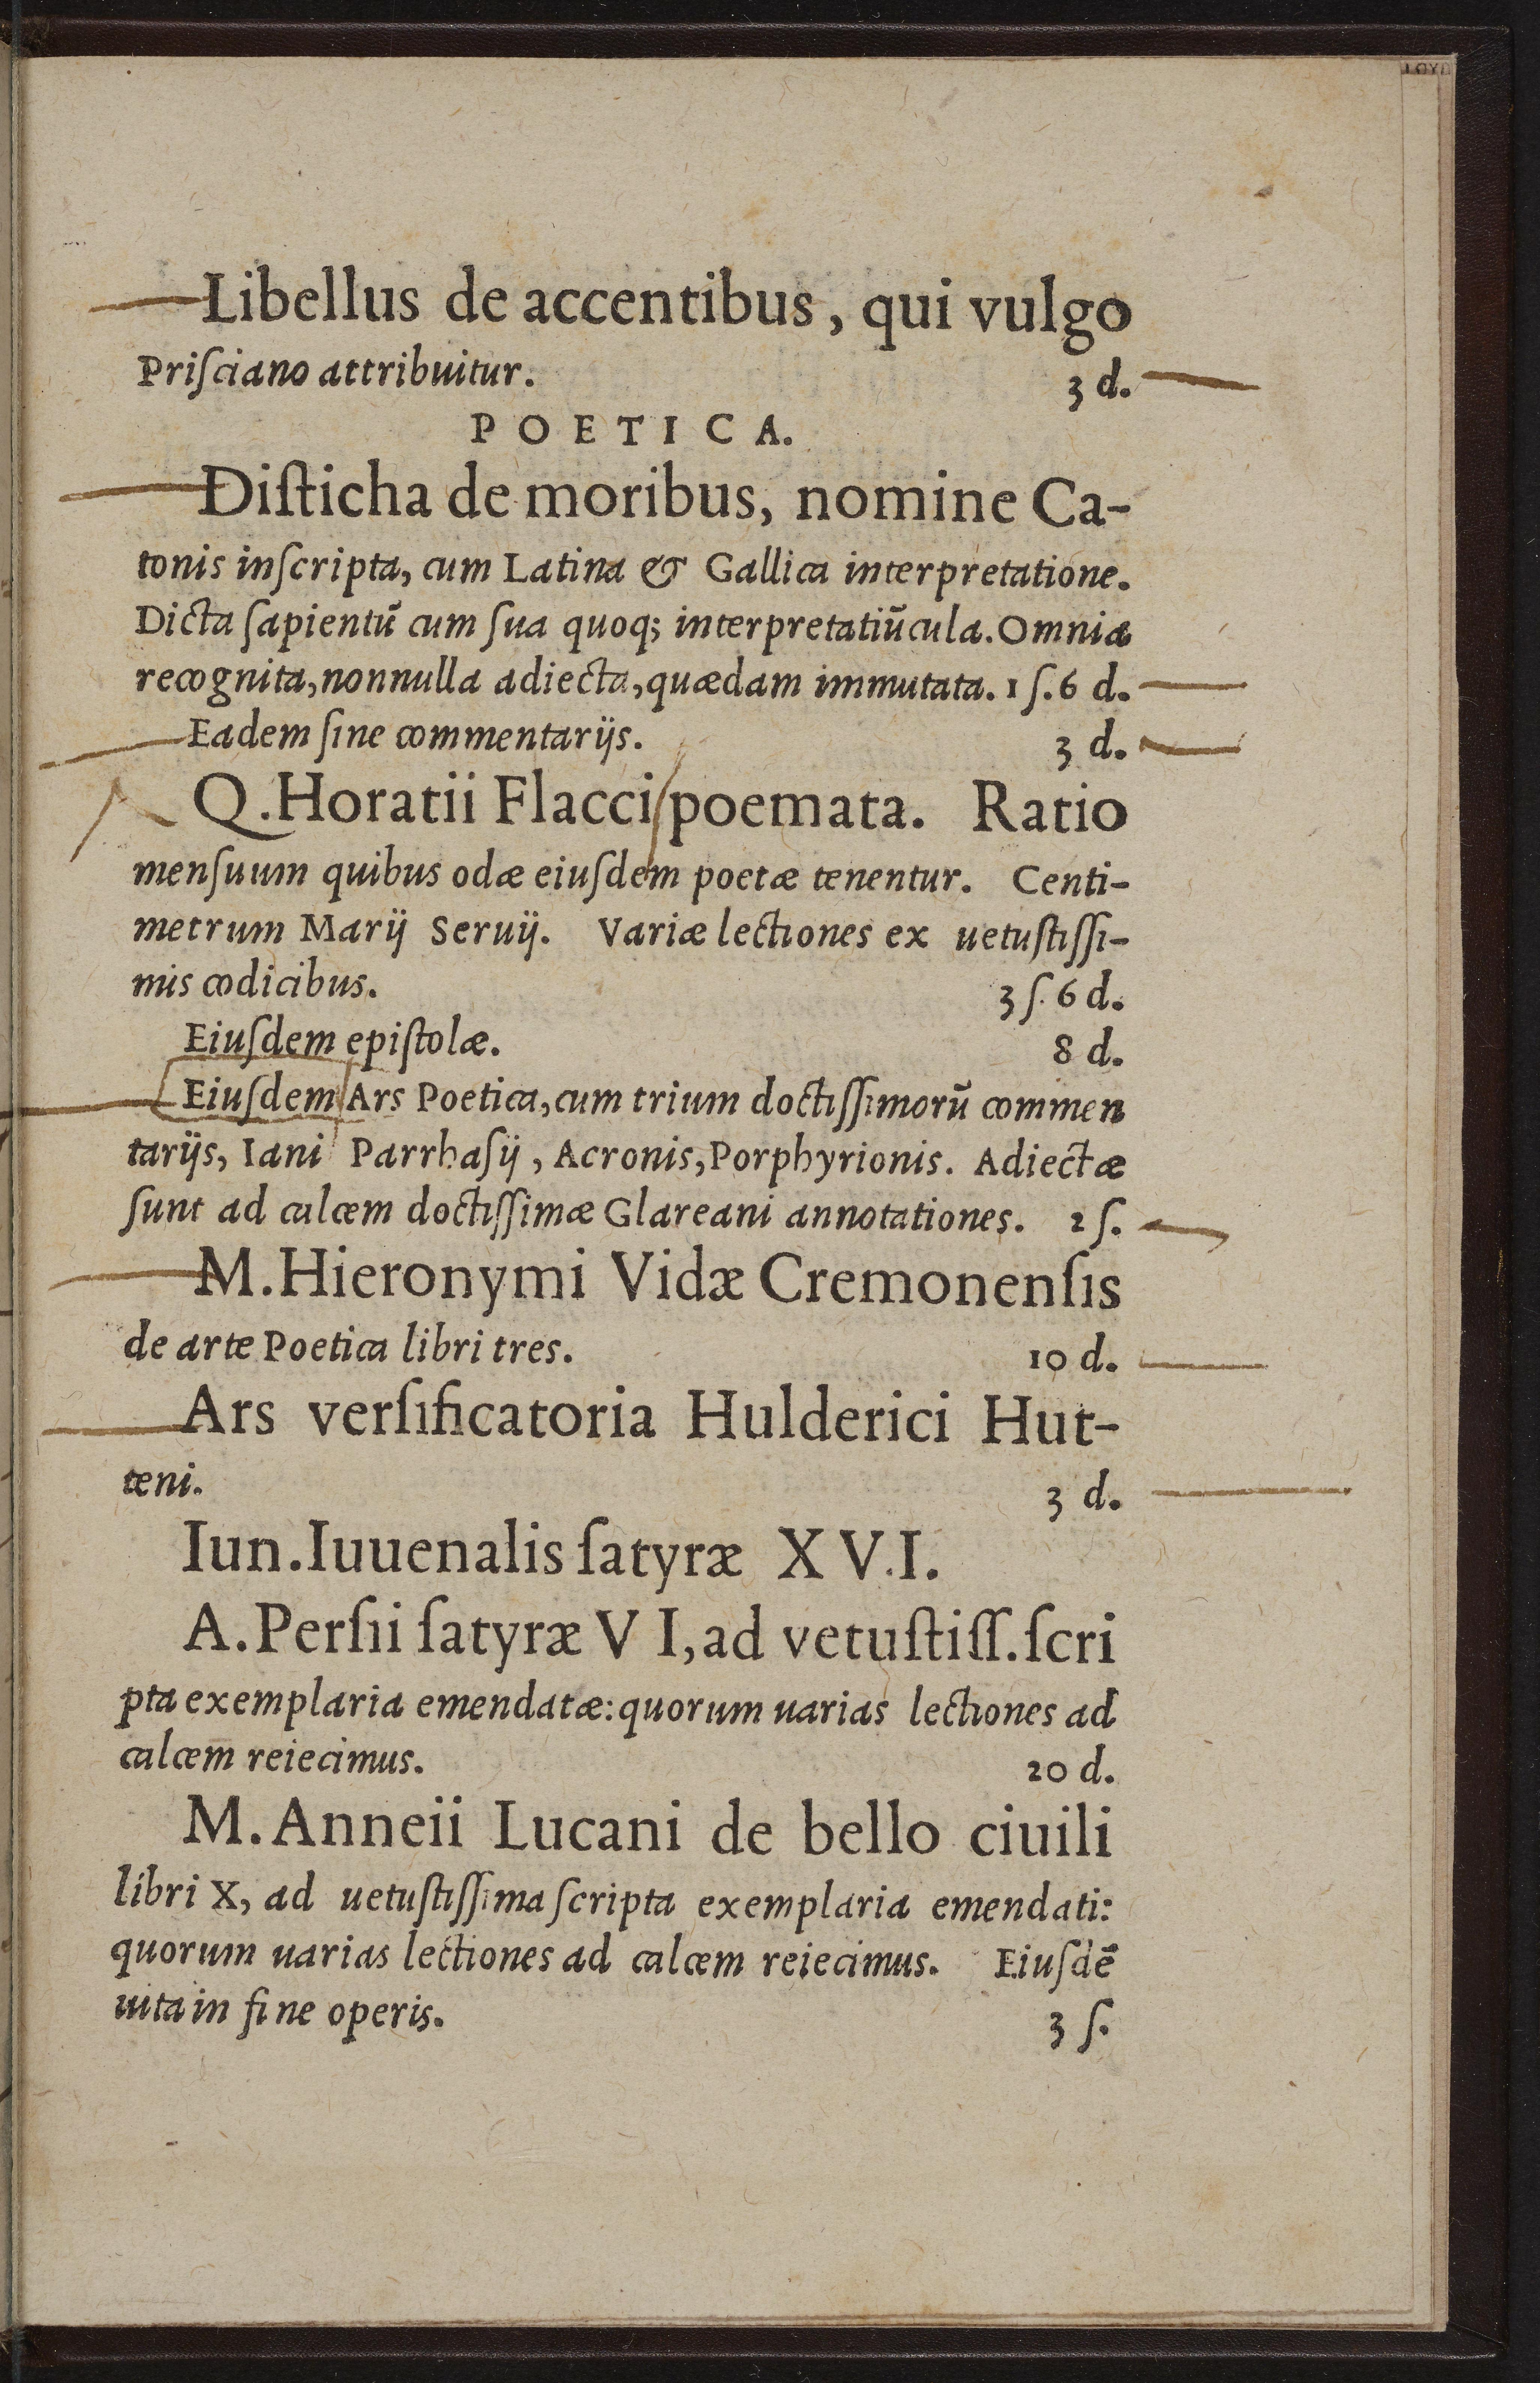 Libellus de accentibus, qui vulgo
Priſciano attribuitur. 3 d.
POETICA.
Diſticha de moribus, nomine Ca-
tonis inſcripta, cum Latina & Gallica interpretatione.
Dicta ſapientū cum ſua quoq; interpretatiūcula. Omnia
recognita, nonnulla adiecta, quædam immutata. 1 ſ. 6 d.
Eadem ſine commentarijs. 3 d.
Q. Horatii Flacci poemata. Ratio
menſuum quibus odæ eiuſdem poetæ tenentur. Centi-
metrum Marij Seruij. Variæ lectiones ex uetuſtiſſi-
mis codicibus. 3 ſ. 6 d.
Eiuſdem epiſtolæ. 8 d.
Eiuſdem Ars Poetica, cum trium doctiſſimorū commen
tarijs, Iani Parrhaſij, Acronis, Porphyrionis. Adiectæ
ſunt ad calcem doctiſſimæ Glareani annotationes. 2 ſ.
M. Hieronymi Vidæ Cremonenſis
de arte Poetica libri tres. 10 d.
Ars verſificatoria Hulderici Hut-
teni. 3 d.
Iun. Iuuenalis ſatyræ XVI.
A. Perſii ſatyræ VI, ad vetuſtiſſ. ſcri
pta exemplaria emendatæ: quorum uarias lectiones ad
calcem reiecimus. 20 d.
M. Anneii Lucani de bello ciuili
libri X, ad uetuſtiſſima ſcripta exemplaria emendati:
quorum uarias lectiones ad calcem reiecimus. Eiuſdē
uita in fine operis. 3 ſ.